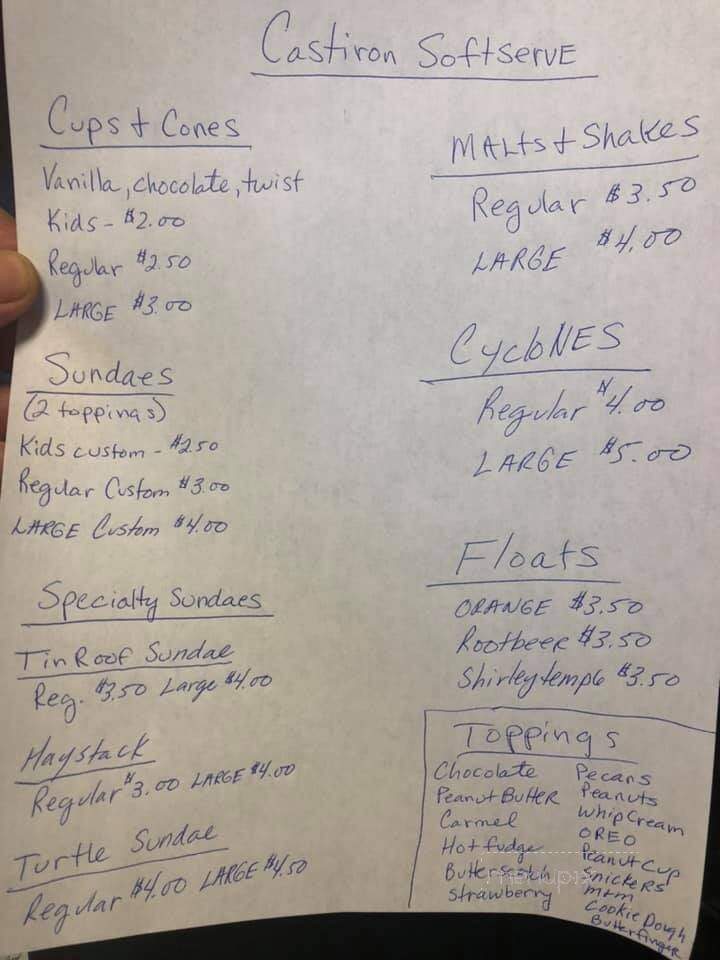 Castiron Softserve
Cups + Cones
Vanilla, chocolate, twist
Kids - $2.00
Regular $2.50
LARGE $3.00
Sundaes
(2 toppings)
Kids custom - $2.50
Regular Custom $3.00
LARGE Custom $4.00
Specialty Sundaes
Tin Roof Sundae
Reg. $3.50 Large $4.00
Haystack
Regular $3.00 LARGE $4.00
Turtle Sundae
Regular $4.00 LARGE $4.50
MALTS + Shakes
Regular $3.50
LARGE $4.00
CycloNES
Regular $4.00
LARGE $5.00
Floats
ORANGE $3.50
Rootbeer $3.50
Shirleytemple $3.50
Toppings
Chocolate
Peanut Butter
Carmel
Hot fudge
Butterscotch
Strawberry
Pecans
Peanuts
Whip Cream
OREO
Peanut Cup
Snickers
m+m
Cookie Dough
Butterfinger